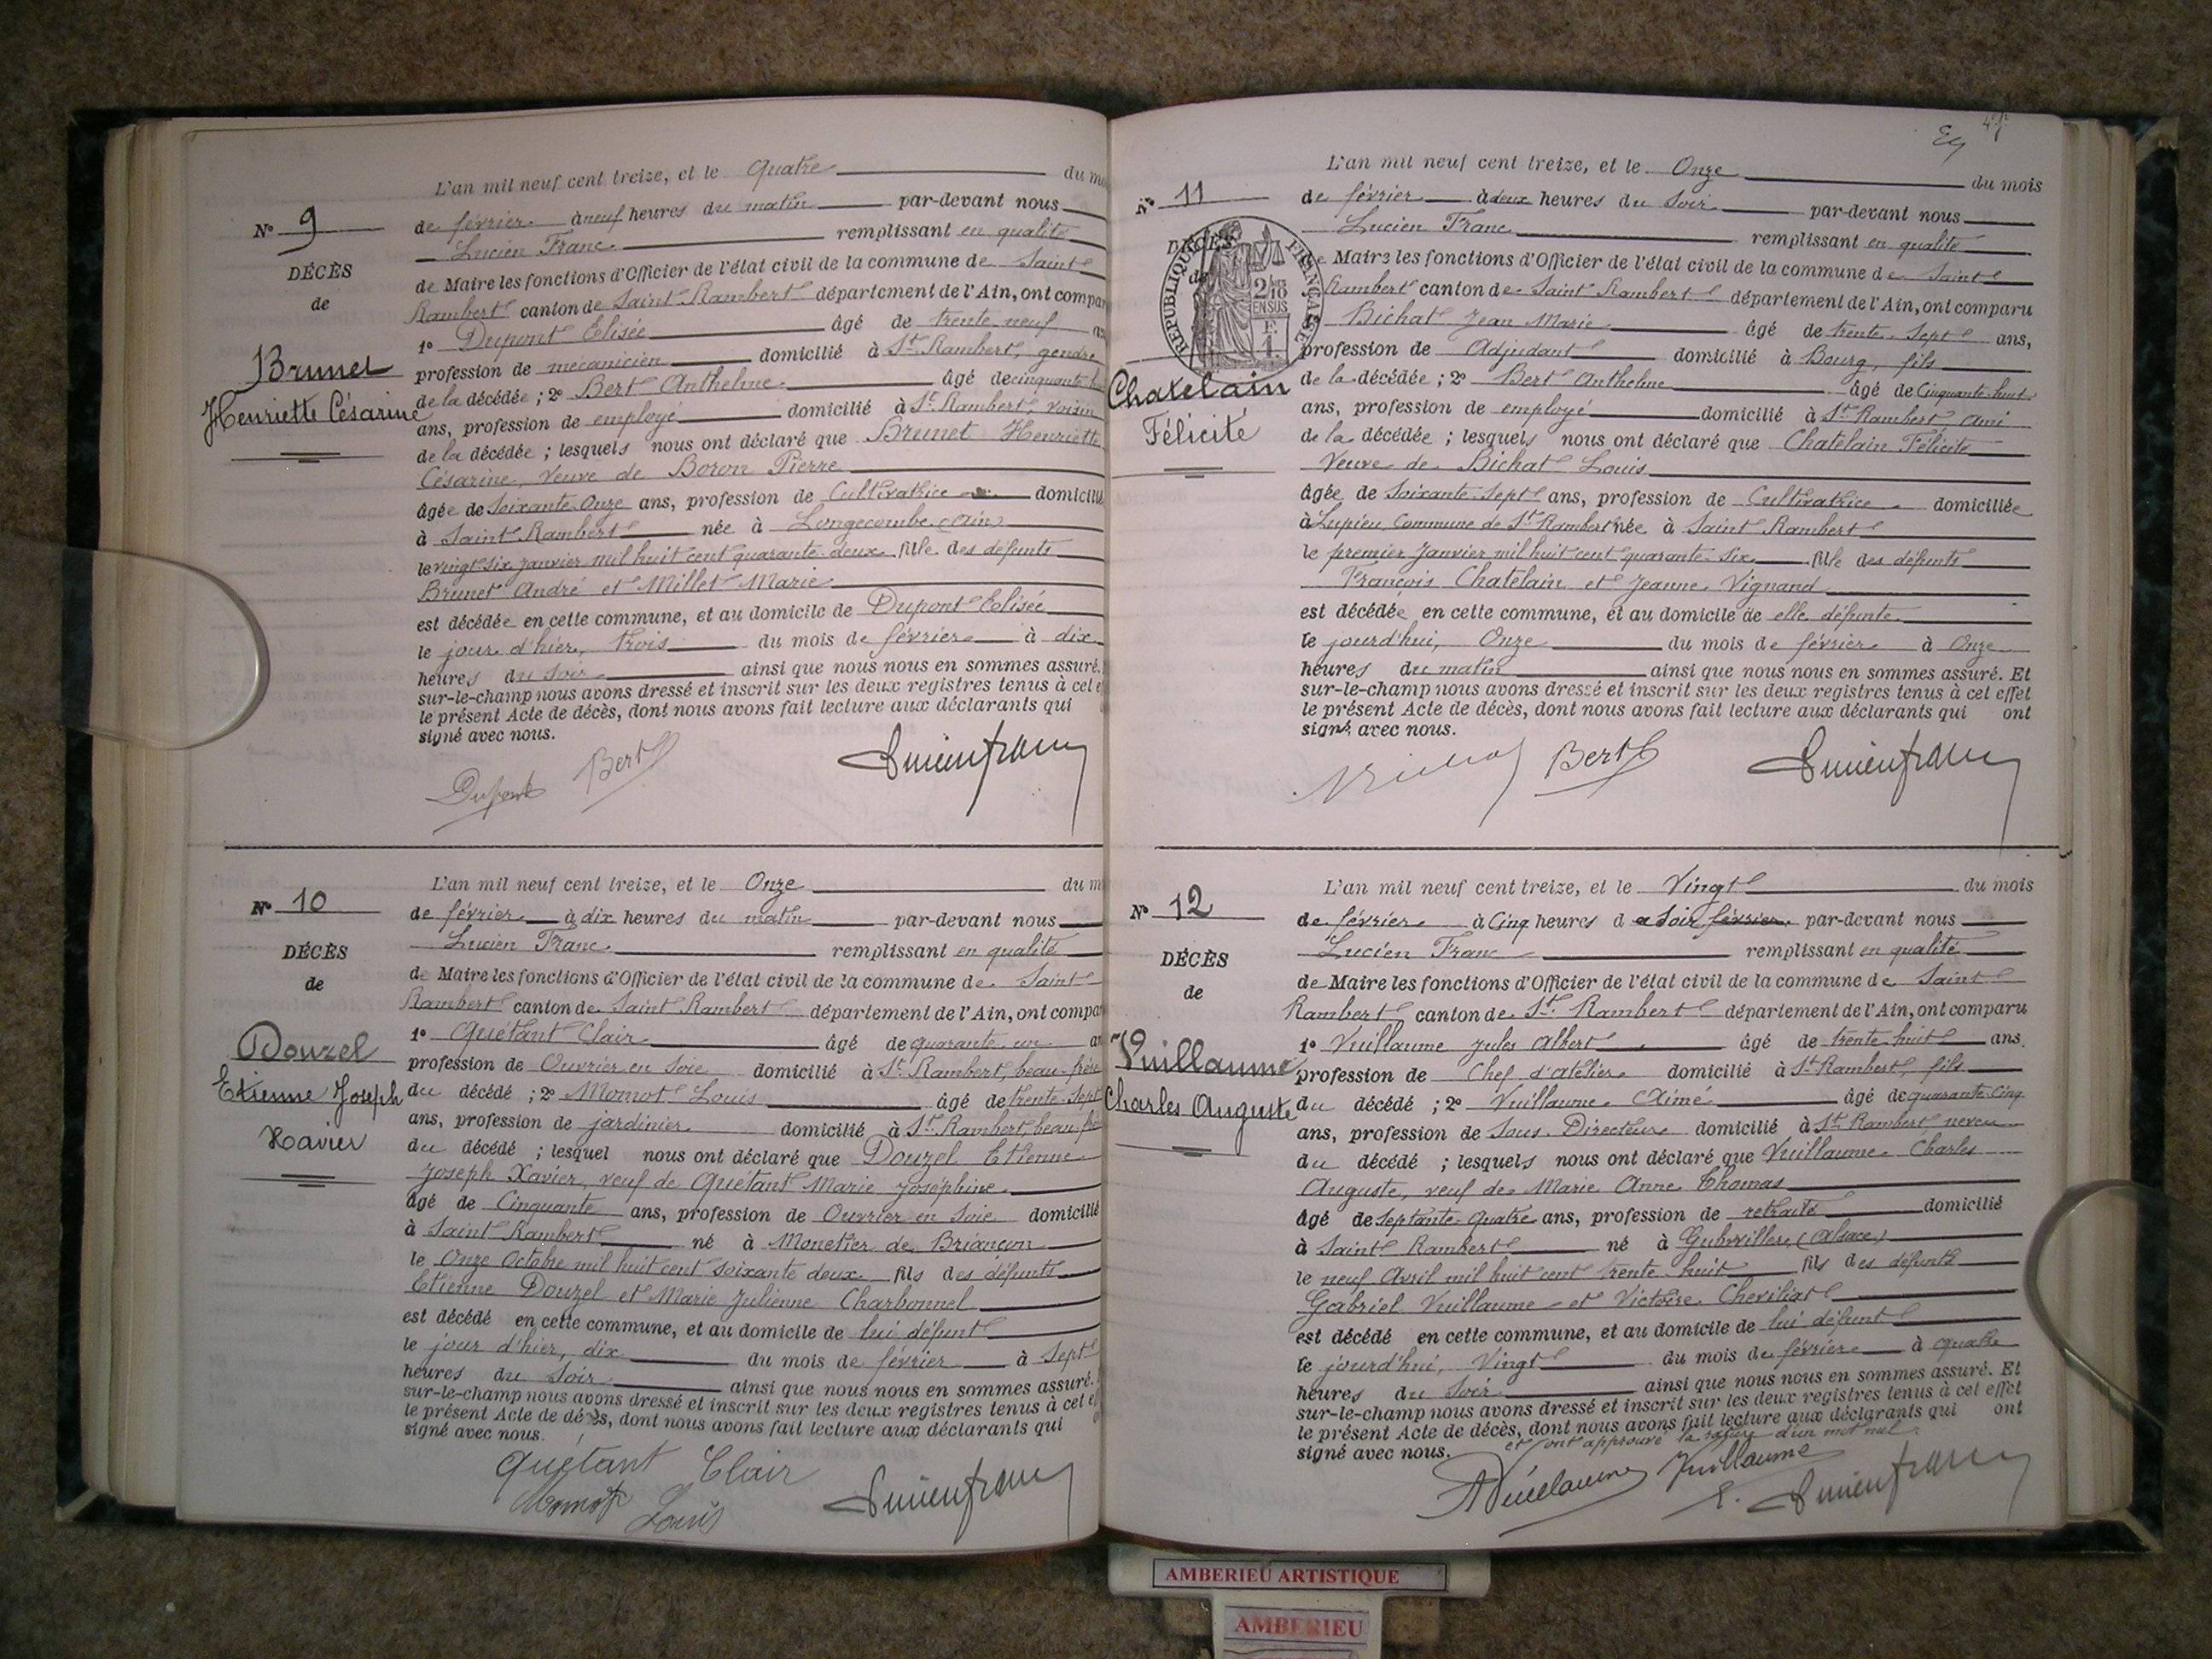 L'an mil neuf cent treize, et le Quatre du m
N° 9
de février à neuf heures du matin par-devant nous
Lucien Franc remplissant en qualité
DÉCÈS
de Maire les fonctions d'Officier de l'état civil de la commune de Saint
de
Rambert canton de Saint Rambert département de l'Ain, ont compar
1° Dupont Elisée âgé de trente neuf
Brunet
profession de mécanicien domicilié à St Rambert, gendre
Henriette Césarine
de la décédée ; 2° Bert Anthelme âgé de cinquante
ans, profession de employé domicilié à St Rambert, voisin
de la décédée ; lesquels nous ont déclaré que Brunet Henriette
Césarine, veuve de Boron Pierre
âgée de Soixante Onze ans, profession de Cultivatrice domicilié
à Saint Rambert née à Longecombe (Ain)
le vingt six janvier mil huit cent quarante deux fille des défunts
Brunet André et Millet Marie
est décédée en cette commune, et au domicile de Dupont Elisée
le jour d'hier, trois du mois de février à dix
heures du soir ainsi que nous nous en sommes assuré.
sur-le-champ nous avons dressé et inscrit sur les deux registres tenus à cet e
le présent Acte de décès, dont nous avons fait lecture aux déclarants qui
signé avec nous.
Dupont Bert Lucien franc
L'an mil neuf cent treize, et le Onze du m
N° 10
de février à dix heures du matin par-devant nous
Lucien Franc remplissant en qualité
DÉCÈS
de Maire les fonctions d'Officier de l'état civil de la commune de Saint
de
Rambert canton de Saint Rambert département de l'Ain, ont compa
1° Quétant Clair âgé de quarante un an
Douzel
profession de Ouvrier en Soie domicilié à St Rambert, beau-frère
Etienne Joseph
du décédé ; 2° Momot Louis âgé de trente sept
Xavier
ans, profession de jardinier domicilié à St Rambert, beau-frè
du décédé ; lesquel nous ont déclaré que Douzel Etienne
Joseph Xavier, veuf de Quétant Marie Joséphine
âgé de Cinquante ans, profession de Ouvrier en Soie domicilié
à Saint Rambert né à Monetier de Briançon
le Onze Octobre mil huit cent soixante deux fils des défunts
Etienne Douzel et Marie Julienne Charbonnel
est décédé en cette commune, et au domicile de lui défunt
le jour d'hier, dix du mois de février à Sept
heures du Soir ainsi que nous nous en sommes assuré.
sur-le-champ nous avons dressé et inscrit sur les deux registres tenus à cet e
le présent Acte de décès, dont nous avons fait lecture aux déclarants qui
signé avec nous.
Quétant Clair
Momot Louis Lucien franc
L'an mil neuf cent treize, et le Onze du mois
N° 11
de février à deux heures du Soir par-devant nous
Lucien Franc remplissant en qualité
DÉCÈS
de
RÉPUBLIQUE FRANÇAISE
2/10 EN SUS
F. 1.
de Maire les fonctions d'Officier de l'état civil de la commune de Saint
Rambert canton de Saint Rambert département de l'Ain, ont comparu
Bichat Jean Marie âgé de trente Sept ans,
profession de Adjudant domicilié à Bourg, fils
Chatelain
Félicité
de la décédée ; 2° Bert Anthelme âgé de Cinquante huit
ans, profession de employé domicilié à St Rambert, ami
de la décédée ; lesquels nous ont déclaré que Chatelain Félicité
Veuve de Bichat Louis
âgée de Soixante Sept ans, profession de Cultivatrice domiciliée
à Lupieu Commune de St Rambert née à Saint Rambert
le premier Janvier mil huit cent quarante Six fille des défunts
François Chatelain et Jeanne Vignand
est décédée en cette commune, et au domicile de elle défunte
le jourd'hui, Onze du mois de février à Onze
heures du matin ainsi que nous nous en sommes assuré. Et
sur-le-champ nous avons dressé et inscrit sur les deux registres tenus à cet effet
le présent Acte de décès, dont nous avons fait lecture aux déclarants qui ont
signé avec nous.
Bert Lucien franc
L'an mil neuf cent treize, et le Vingt du mois
N° 12
de février à Cinq heures d u Soir février par-devant nous
Lucien Franc remplissant en qualité
DÉCÈS
de Maire les fonctions d'Officier de l'état civil de la commune de Saint
de
Rambert canton de St Rambert département de l'Ain, ont comparu
1° Vuillaume Jules Albert âgé de trente huit ans.
Vuillaume
profession de Chef d'atelier domicilié à St Rambert, fils
Charles Auguste
du décédé ; 2° Vuillaume Aimé âgé de quarante Cinq
ans, profession de Sous-Directeur domicilié à St Rambert, neveu
du décédé ; lesquels nous ont déclaré que Vuillaume Charles
Auguste, veuf de Marie Anne Thomas
âgé de Septante quatre ans, profession de retraité domicilié
à Saint Rambert né à Gubwiller (Alsace)
le neuf Avril mil huit cent trente huit fils des défunts
Gabriel Vuillaume et Victoire Cheviliat
est décédé en cette commune, et au domicile de lui défunt
le jourd'hui, Vingt du mois de février à quatre
heures du Soir ainsi que nous nous en sommes assuré. Et
sur-le-champ nous avons dressé et inscrit sur les deux registres tenus à cet effet
le présent Acte de décès, dont nous avons fait lecture aux déclarants qui ont
signé avec nous. et ont approuvé la rature d'un mot nul
A Vuillaume Vuillaume Lucien franc
AMBERIEU ARTISTIQUE
AMBERIEU